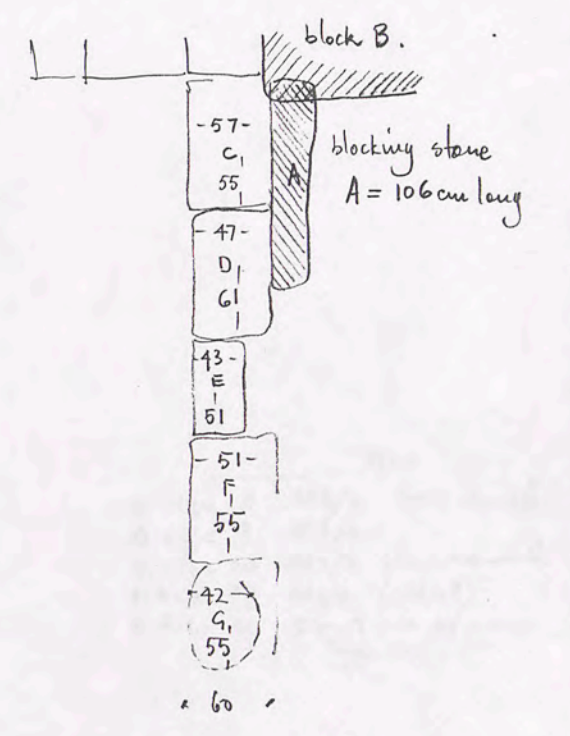 block B.
-57-
C
55
A
blocking stone
A = 106 cm long
-47-
D
61
43-
E
51
-51-
F
55
-42-
G
55
60